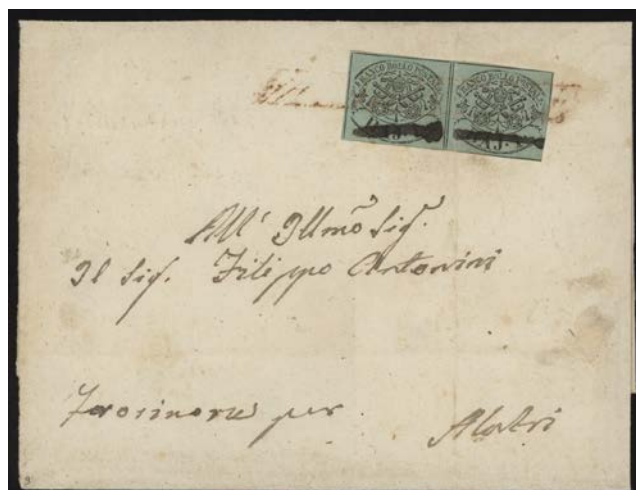 FRANCO BOLLO POSTALE FRANCO BOLLO POSTALE
BAJ. BAJ.
All' Illmõ Sig.
Il Sig. Filippo Antonini
Frosinone per Alatri